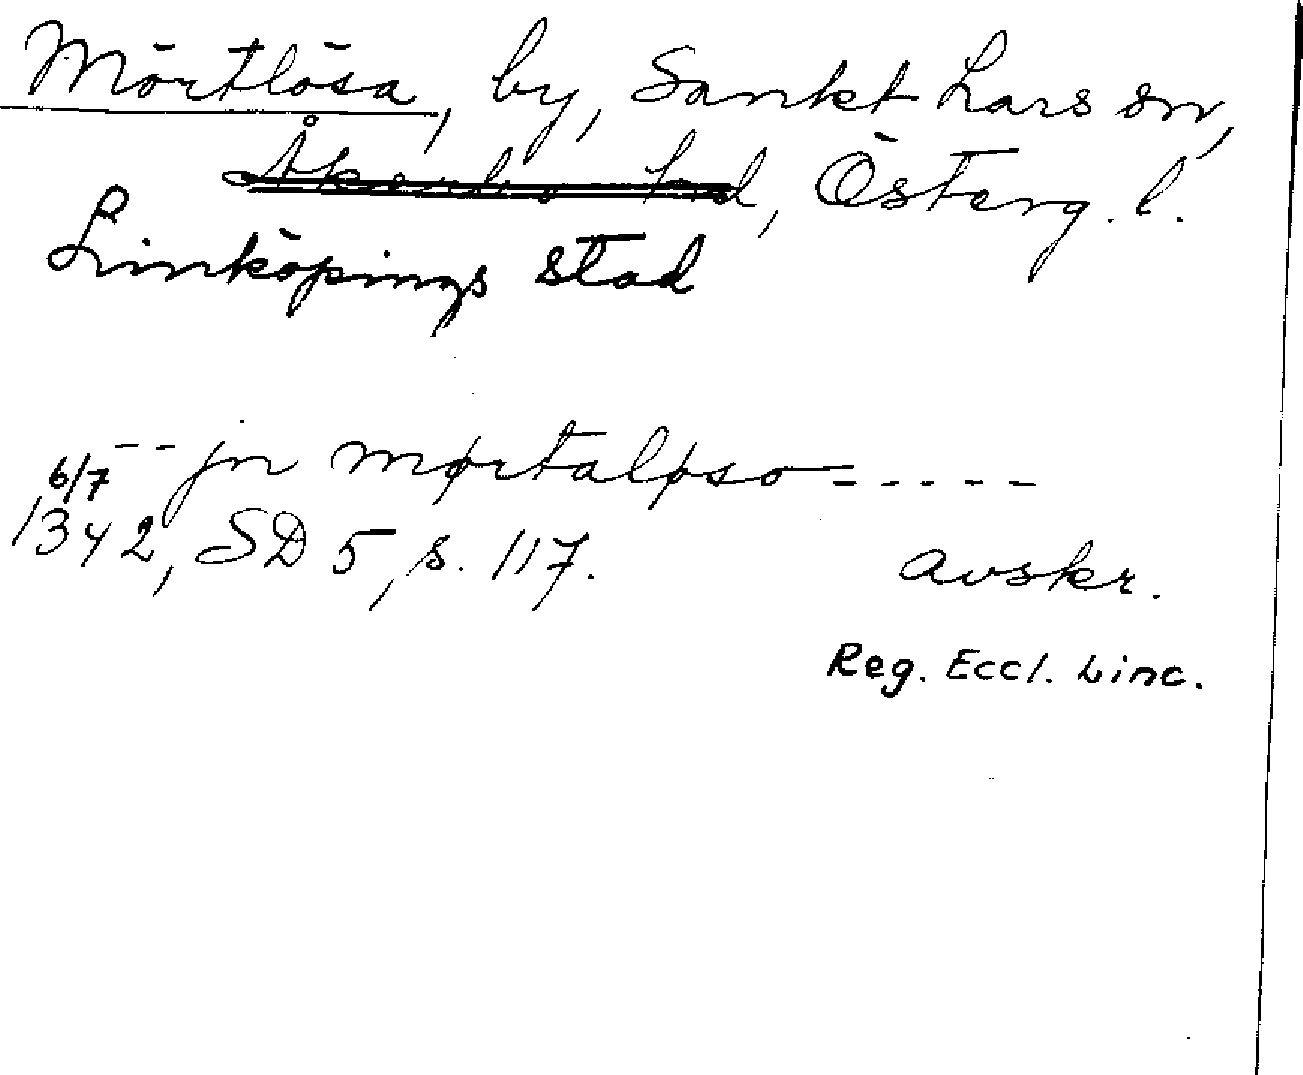 Mörtlösa, by, Sankt Lars sn,
Åkerbo hd, Österg. l.
Linköpings stad
-- jn mørtaløso -----
6/7
1342, SD 5, s. 117.
avskr.
Reg. Eccl. Linc.